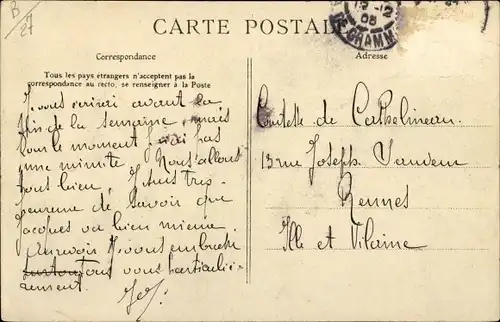 B
27
CARTE POSTALE
15-12
08
DE GRAMM
Correspondance
Adresse
Tous les pays étrangers n'acceptent pas la
correspondance au recto, se renseigner à la Poste
J. vous écrirai avant la
fin de la semaine, mais
pour le moment j'ai pas
une minute. Nous allons
tous bien, suis très
heureuse de savoir que
Jacques va bien mieux.
Au revoir J. vous embrasse
tous vous particuliè-
rement.
Comtesse de Cathelineau
13 rue Joseph Sauveur
Rennes
Ille et Vilaine